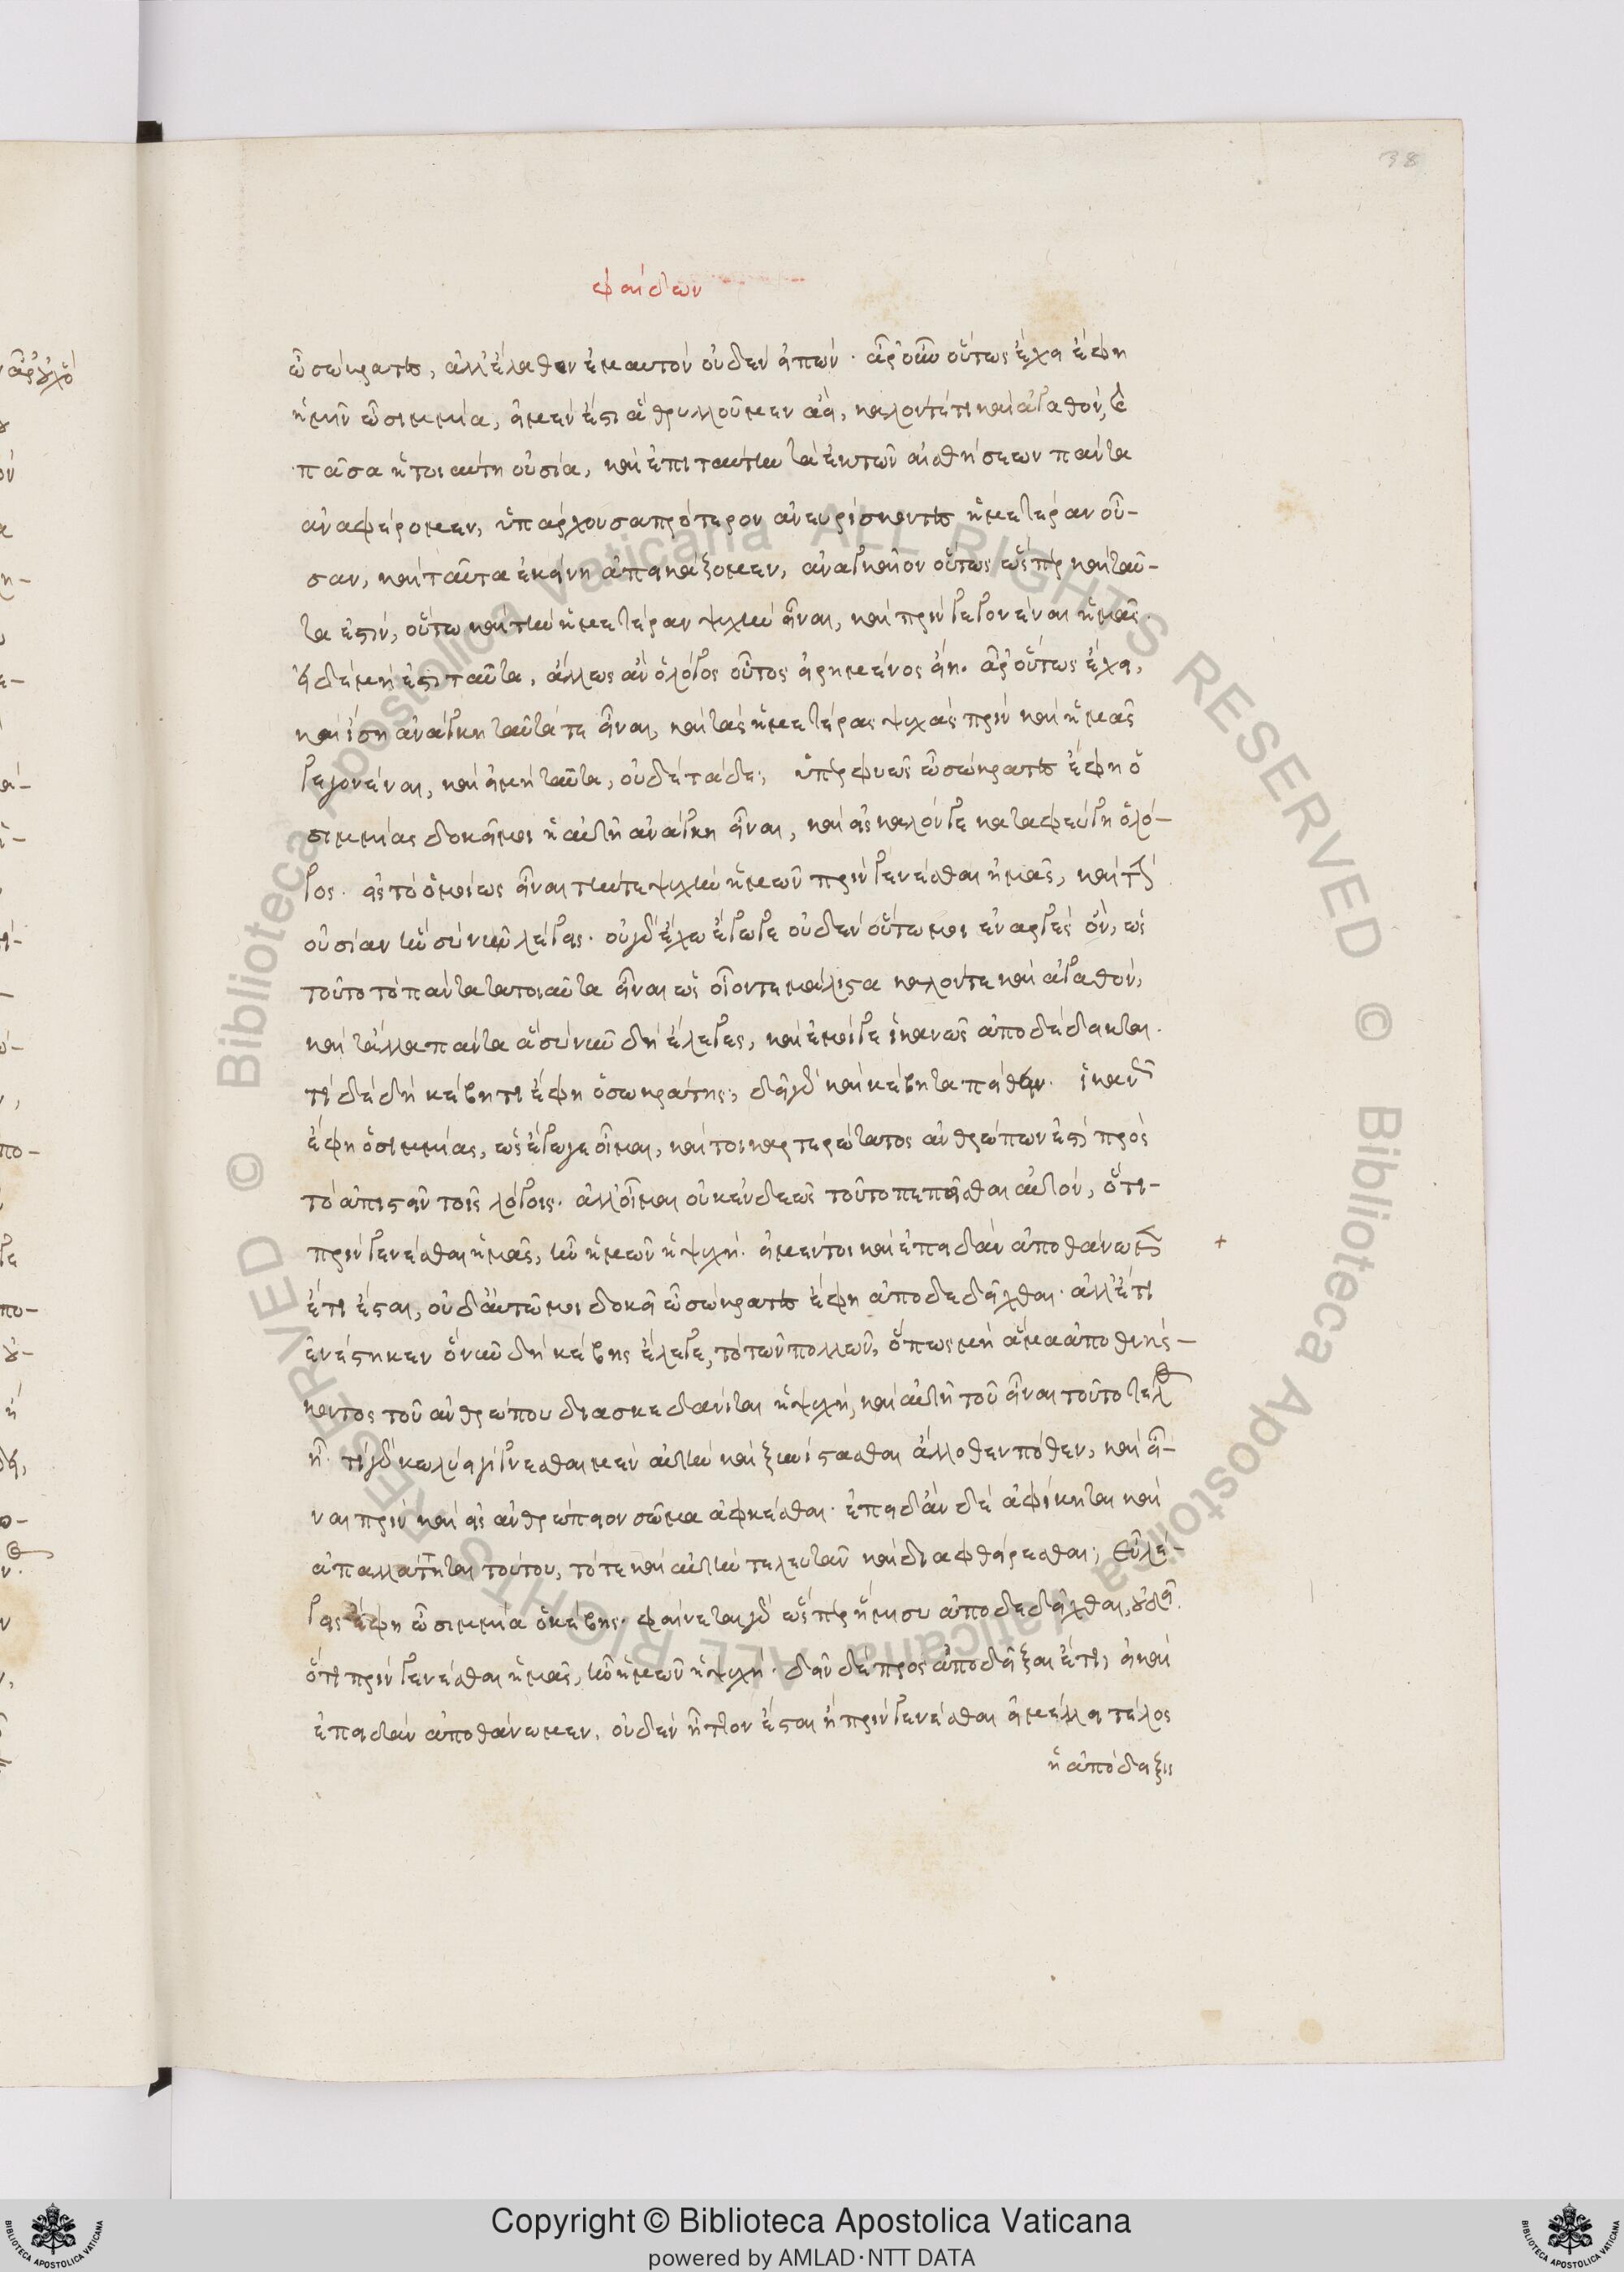 38
φαίδων
ὦ σώκρατες, ἀλλ' ἔλαθον ἐμαυτὸν οὐδὲν εἰπών. ἆρ' οὖν οὕτως ἔχει ἔφη
ἡμῖν ὦ σιμμία, εἰ μὲν ἔστι ἃ θρυλλοῦμεν ἀεὶ, καλόν τέ τι καὶ ἀγαθὸν, καὶ
πᾶσα ἡ τοιαύτη οὐσία, καὶ ἐπὶ ταύτην τὰ ἐκ τῶν αἰσθήσεων πάντα
ἀναφέρομεν, ὑπάρχουσα πρότερον ἀνευρίσκοντες ἡμετέραν οὖ-
σαν, καὶ ταῦτα ἐκείνῃ ἀπεικάζομεν, ἀναγκαῖον οὕτως ὥσπερ καὶ ταῦ-
τα ἐστὶν, οὕτω καὶ τὴν ἡμετέραν ψυχὴν εἶναι, καὶ πρὶν γεγονέναι ἡμᾶς.
εἰ δὲ μή ἐστι ταῦτα, ἄλλως ἂν ὁ λόγος οὗτος εἰρημένος εἴη. ἆρ' οὕτως ἔχει,
καὶ ἴση ἀνάγκη ταῦτά τε εἶναι, καὶ τὰς ἡμετέρας ψυχὰς πρὶν καὶ ἡμᾶς
γεγονέναι, καὶ εἰ μὴ ταῦτα, οὐδὲ τάδε; ὑπερφυῶς ὦ σώκρατες ἔφη ὁ
σιμμίας δοκεῖ μοι ἡ αὐτὴ ἀνάγκη εἶναι, καὶ εἰς καλόν γε καταφεύγῃ ὁ λό-
γος. εἰς τὸ ὁμοίως εἶναι τήν τε ψυχὴν ἡμῶν πρὶν γενέσθαι ἡμᾶς, καὶ τὴν
οὐσίαν ἣν σὺ νῦν λέγεις. οὐ γὰρ ἔχω ἔγωγε οὐδὲν οὕτω μοι ἐναργὲς ὂν, ὡς
τοῦτο τὸ πάντα τὰ τοιαῦτα εἶναι ὡς οἷόν τε μάλιστα καλόν τε καὶ ἀγαθὸν,
καὶ τἄλλα πάντα ἃ σὺ νῦν δὴ ἔλεγες, καὶ ἔμοιγε ἱκανῶς ἀποδέδεικται.
τί δὲ δὴ κέβητι ἔφη ὁ σωκράτης; δεῖ γὰρ καὶ κέβητα πείθειν. ἱκανῶς
ἔφη ὁ σιμμίας, ὡς ἔγωγε οἶμαι, καί τοι καρτερώτατος ἀνθρώπων ἐστὶ πρὸς
τὸ ἀπιστεῖν τοῖς λόγοις. ἀλλ' οἶμαι οὐκ ἐνδεῶς τοῦτο πεπεῖσθαι αὐτὸν, ὅτι
πρὶν γενέσθαι ἡμᾶς, ἦν ἡμῶν ἡ ψυχή. εἰ μέντοι καὶ ἐπειδὰν ἀποθάνωμεν +
ἔτι ἔσται, οὐδ' αὐτῷ μοι δοκεῖ ὦ σώκρατες ἔφη ἀποδεδεῖχθαι. ἀλλ' ἔτι
ἐνέστηκεν ὃ νῦν δὴ κέβης ἔλεγε, τὸ τῶν πολλῶν, ὅπως μὴ ἅμα ἀποθνήσ-
κοντος τοῦ ἀνθρώπου διασκεδάνυται ἡ ψυχὴ, καὶ αὐτῇ τοῦ εἶναι τοῦτο τέλος
ᾖ. τί γὰρ κωλύει γίγνεσθαι μὲν αὐτὴν καὶ ξυνίστασθαι ἄλλοθεν πόθεν, καὶ εἶ-
ναι πρὶν καὶ εἰς ἀνθρώπειον σῶμα ἀφικέσθαι. ἐπειδὰν δὲ ἀφίκηται καὶ
ἀπαλλάττηται τούτου, τότε καὶ αὐτὴν τελευτᾶν καὶ διαφθείρεσθαι; εὖ λέ-
γεις ἔφη ὦ σιμμία ὁ κέβης. φαίνεται γὰρ ὥσπερ ἥμισυ ἀποδεδεῖχθαι, οὗ δεῖ.
ὅτι πρὶν γενέσθαι ἡμᾶς, ἦν ἡμῶν ἡ ψυχή. δεῖν δὲ προσαποδεῖξαι ἔτι, εἰ καὶ
ἐπειδὰν ἀποθάνωμεν, οὐδὲν ἧττον ἔσται ἢ πρὶν γενέσθαι εἰ μέλλει τέλος
ἡ ἀπόδειξις
© Biblioteca Apostolica Vaticana ALL RIGHTS RESERVED © Biblioteca Apostolica Vaticana ALL RIGHTS RESERVED
Copyright © Biblioteca Apostolica Vaticana
powered by AMLAD·NTT DATA
BIBLIOTECA APOSTOLICA VATICANA
BIBLIOTECA APOSTOLICA VATICANA